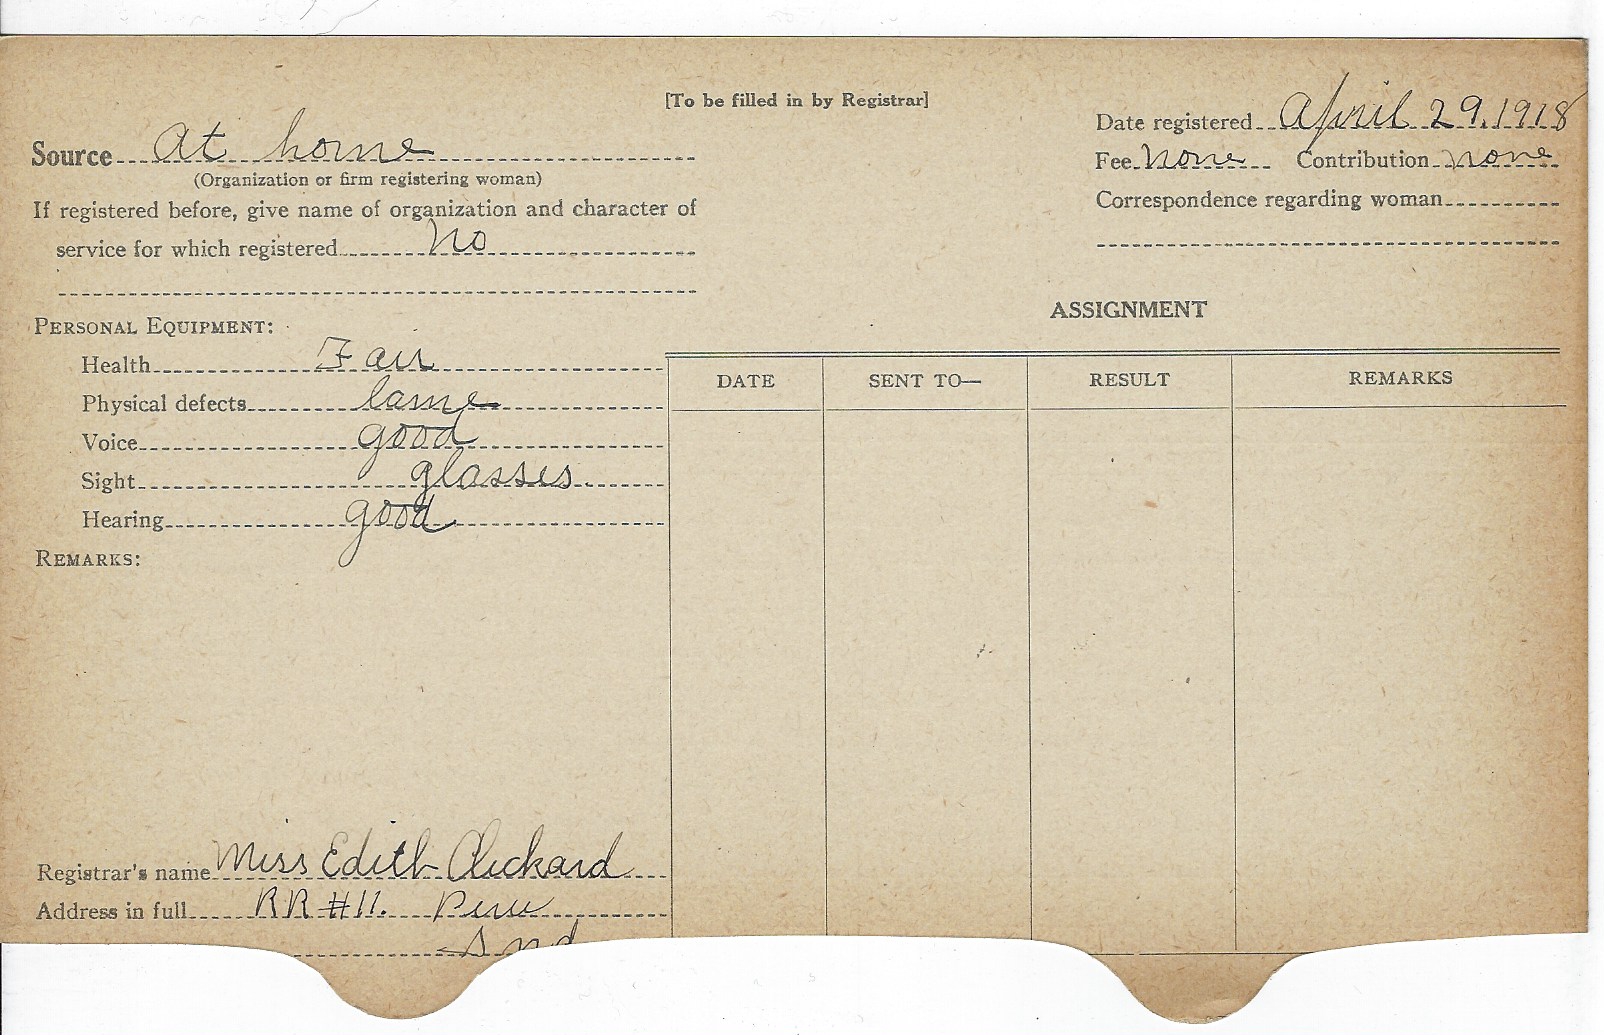 [To be filled in by Registrar]
Date registered April 29, 1918
Source At home
(Organization or firm registering woman)
Fee None Contribution none
If registered before, give name of organization and character of
service for which registered No
Correspondence regarding woman
PERSONAL EQUIPMENT:
Health Fair
Physical defects lame
Voice good
Sight glasses
Hearing good
REMARKS:
ASSIGNMENT
DATE SENT TO— RESULT REMARKS
Registrar's name Miss Edith
Address in full RR #11. Peru
Ind